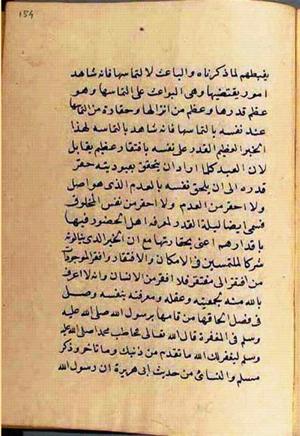 154
يغبطهم لما ذكرناه والباعث لالتماسها فانه شاهد
امور يقتضيها وهى البواعث على التماسها وهو
عظم قدرها وعظم من انزلها وحقارة من التمسها
عند نفسه بالتماسها فانه شاهد بالتماسه لهذا
الخير العظيم القدر على نفسه بافتقار عظيم يقابل
لان العبد كلما اراد ان يتحقق بعبوديته حقر
قدره الى ان يلحق نفسه بالعدم الذى هو اصل
ولا احقر من العدم ولا احقر من نفس المخلوق
فسمى ايضا ليلة القدر لمعرفة اهل الحضور فيها
باقدارهم اعنى بحقارتها مع ان الخير الذى ينالونه
شركا للملتمسين فى الامكان والافتقار وافقر الموجودات
من افتقر الى مفتقر فلا افقر من الانسان وانه لا اعرف
بالله منه لجمعيته وعقله ومعرفته بنفسه وصل
فى فضل الحاقها من قامها برسول الله صلى الله عليه
وسلم فى المغفرة قال الله تعالى يخاطب محمد اصلى الله عليه
وسلم ليغفر لك الله ما تقدم من ذنبك وما تأخر وذكر
مسلم والنسائى من حديث ابى هريرة ان رسول الله